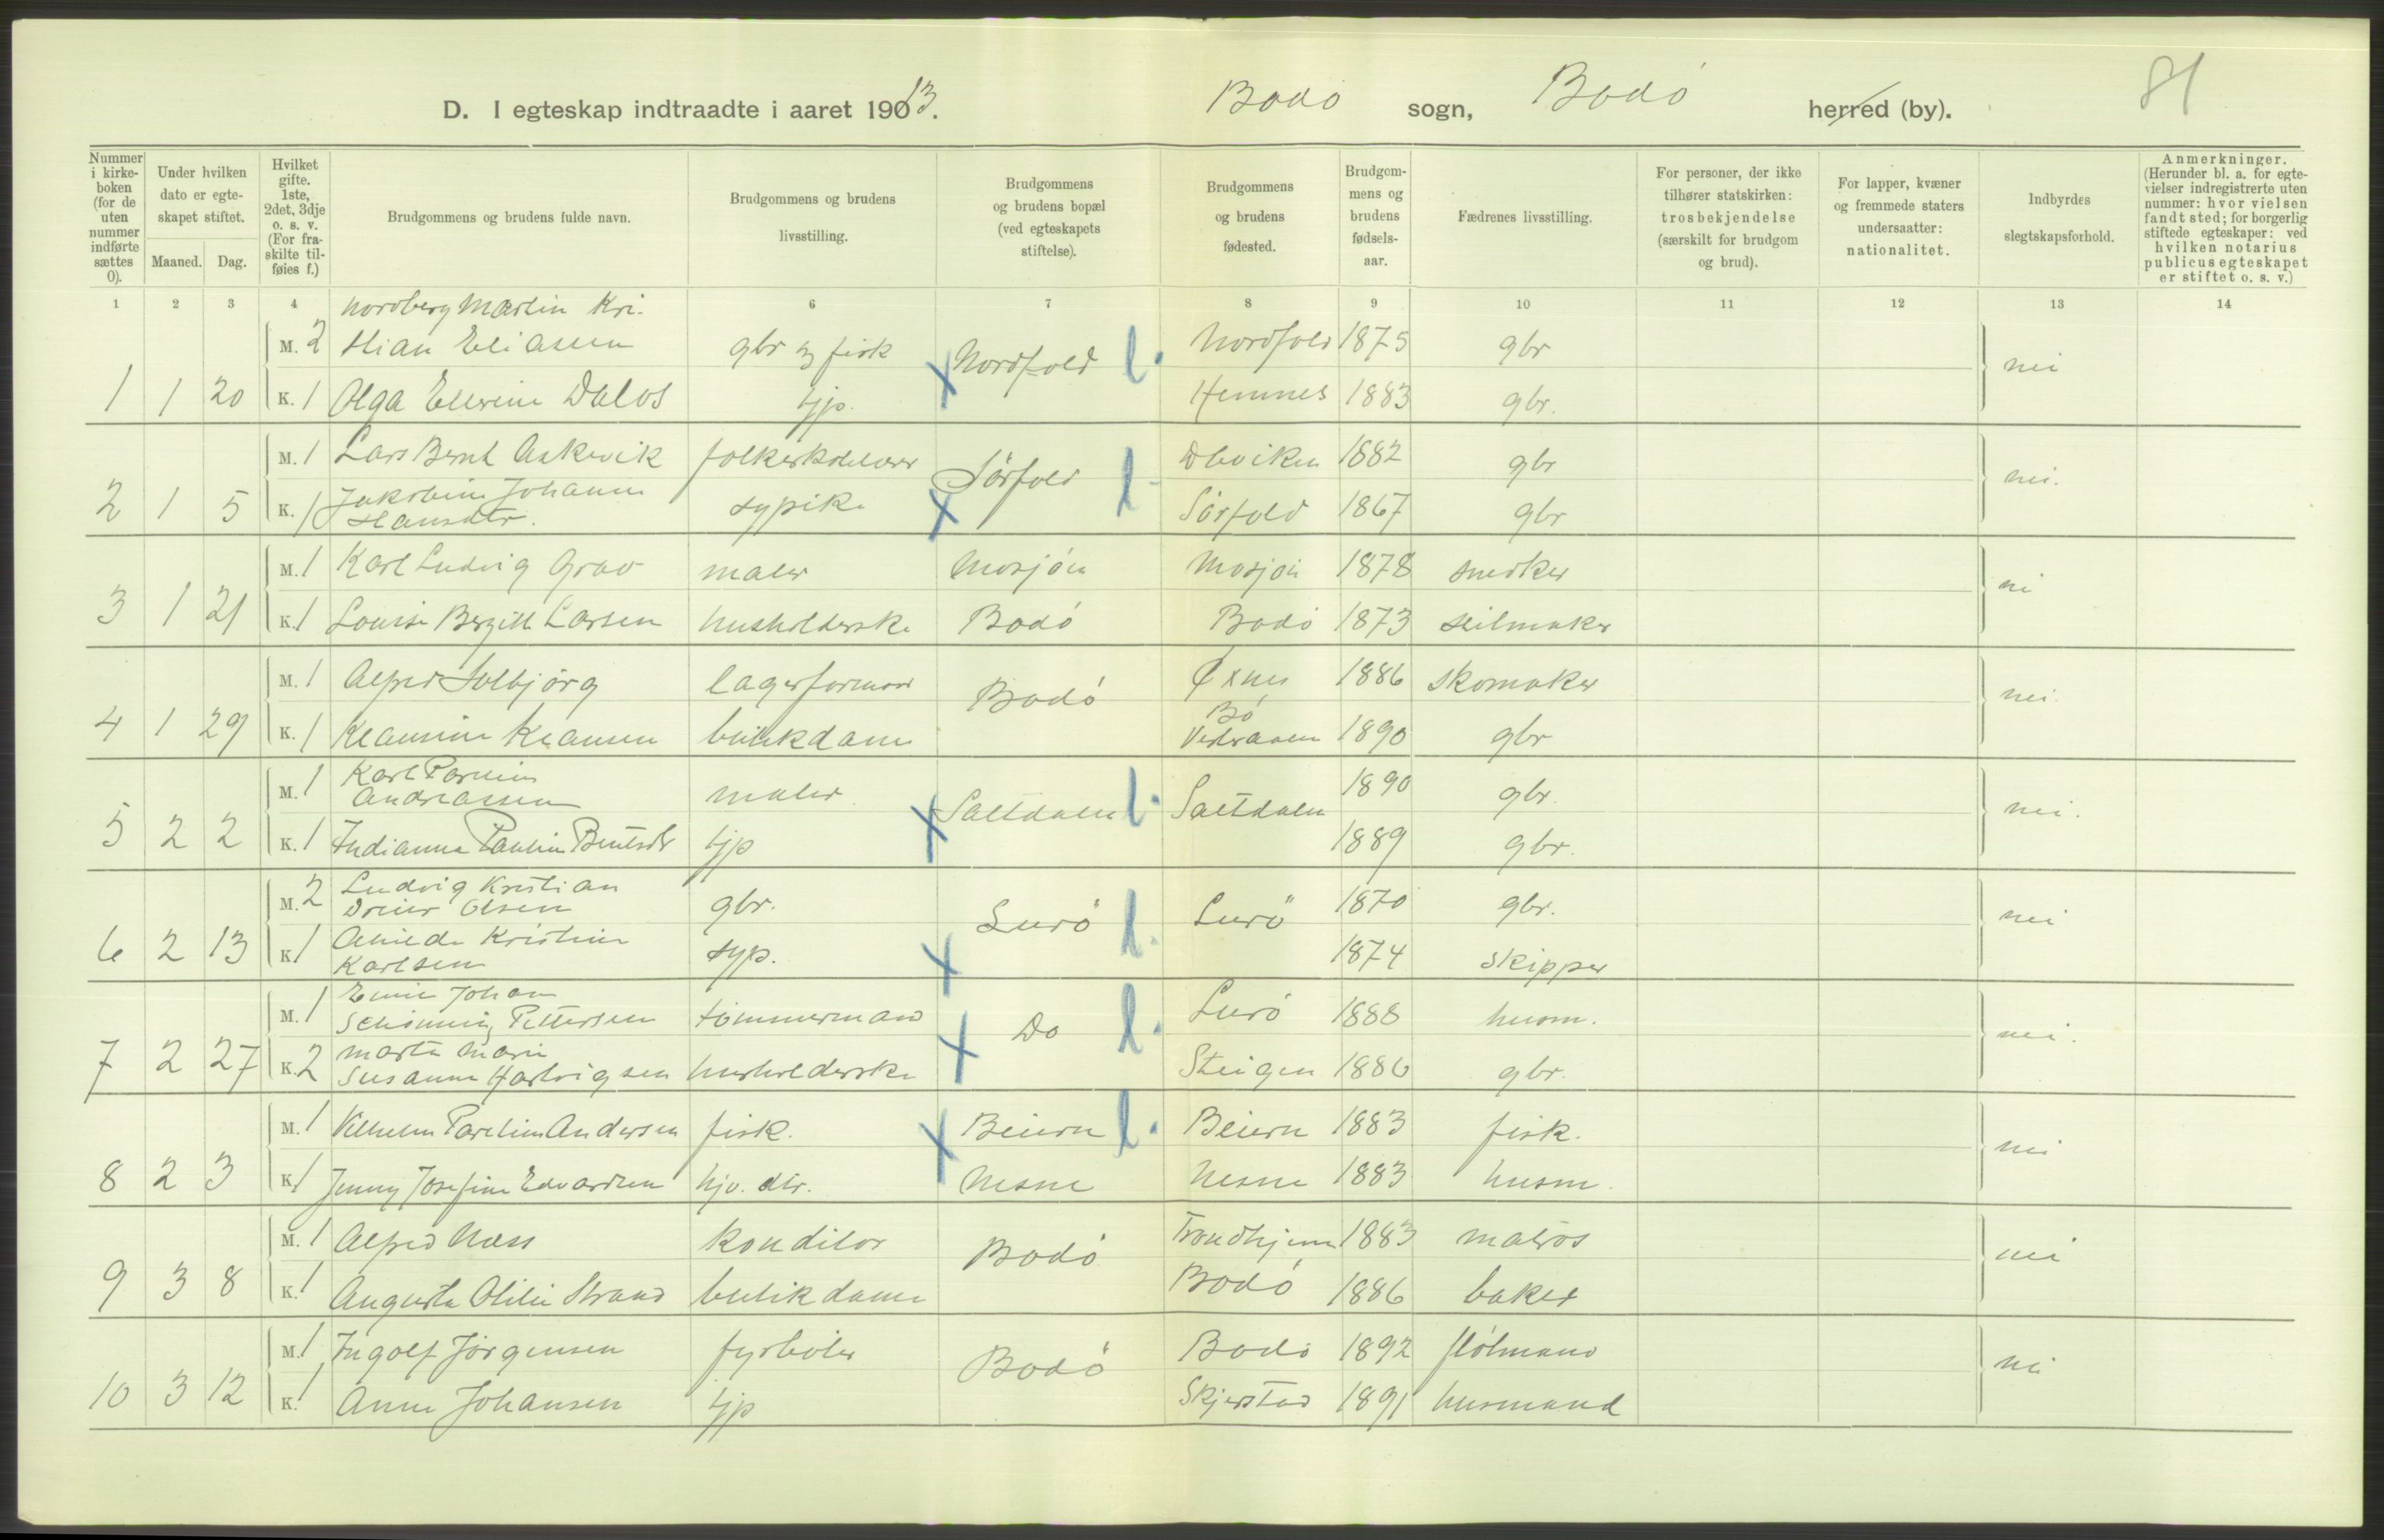 81
D. I egteskap indtraadte i aaret 1913. Bodø sogn, Bodø herred (by).
Nummer i kirkeboken (for de uten nummer indførte sættes 0).
Under hvilken dato er egteskapet stiftet.
Maaned. Dag.
Hvilket gifte. 1ste, 2det, 3dje o. s. v. (For fraskilte tilføies f.)
Brudgommens og brudens fulde navn.
Brudgommens og brudens livsstilling.
Brudgommens og brudens bopæl (ved egteskapets stiftelse).
Brudgommens og brudens fødested.
Brudgommens og brudens fødselsaar.
Fædrenes livsstilling.
For personer, der ikke tilhører statskirken: trosbekjendelse (særskilt for brudgom og brud).
For lapper, kvæner og fremmede staters undersaatter: nationalitet.
Indbyrdes slegtskapsforhold.
Anmerkninger. (Herunder bl. a. for egtevielser indregistrerte uten nummer: hvor vielsen fandt sted; for borgerlig stiftede egteskaper: ved hvilken notarius publicus egteskapet er stiftet o. s. v.)
1 2 3 4 6 7 8 9 10 11 12 13 14
Nordberg Martin Kri-
M. 2 stian Eliassen gbr og fisk Nordfold l. Nordfold 1875 gbr nei
1 1 20 K. 1 Olga Ellerine Dalos tjp. Hemnes 1883 gbr.
M. 1 Lars Bernt Askevik folkeskolelærer Sørfold l. 1882 gbr nei.
2 1 5 K. 1 Jakobine Johanna Hansdtr. sypike Sørfold 1867 gbr
M. 1 Karl Ludvig Grav maler Mosjøen Mosjøen 1878 snedker nei
3 1 21 K. 1 Louise Bergitte Larsen husholderske Bodø Bodø 1873 seilmaker
M. 1 Alfred Solbjørg lagerformand Bodø Øxnes 1886 skomaker nei.
4 1 29 K. 1 Klausine Klausen butikdame Bø Vesteraalen 1890 gbr
M. 1 Karl Parelius Andreassen maler Saltdalen l. Saltdalen 1890 gbr. nei.
5 2 2 K. 1 Indianna Pauline Bentsdtr tjp 1889 gbr.
M. 2 Ludvig Kristian Dreier Olsen gbr. Lurø l. Lurø 1870 gbr. nei
6 2 13 K. 1 Alvilde Kristine Karlsen syp. 1874 skipper
M. 1 Emil Johan Schønning Pettersen tømmermand Do l. Lurø 1888 husm. nei.
7 2 27 K. 2 Marta Marie Susanna Hartvigsen husholderske Steigen 1886 gbr.
M. 1 Vilhelm Parelius Andersen fisk. Beiern l. Beiern 1883 fisk. nei
8 2 3 K. 1 Jenny Josefine Edvardsen hjv. dtr. Nesne Nesne 1883 husm.
M. 1 Alfred Næss konditor Bodø Trondhjem 1883 matros nei
9 3 8 K. 1 Augusta Otilie Strand butikdame Bodø 1886 baker
M. 1 Ingolf Jørgensen fyrbøter Bodø Bodø 1892 nei
10 3 12 K. 1 Anna Johansen tjp Skjerstad 1891 husmand